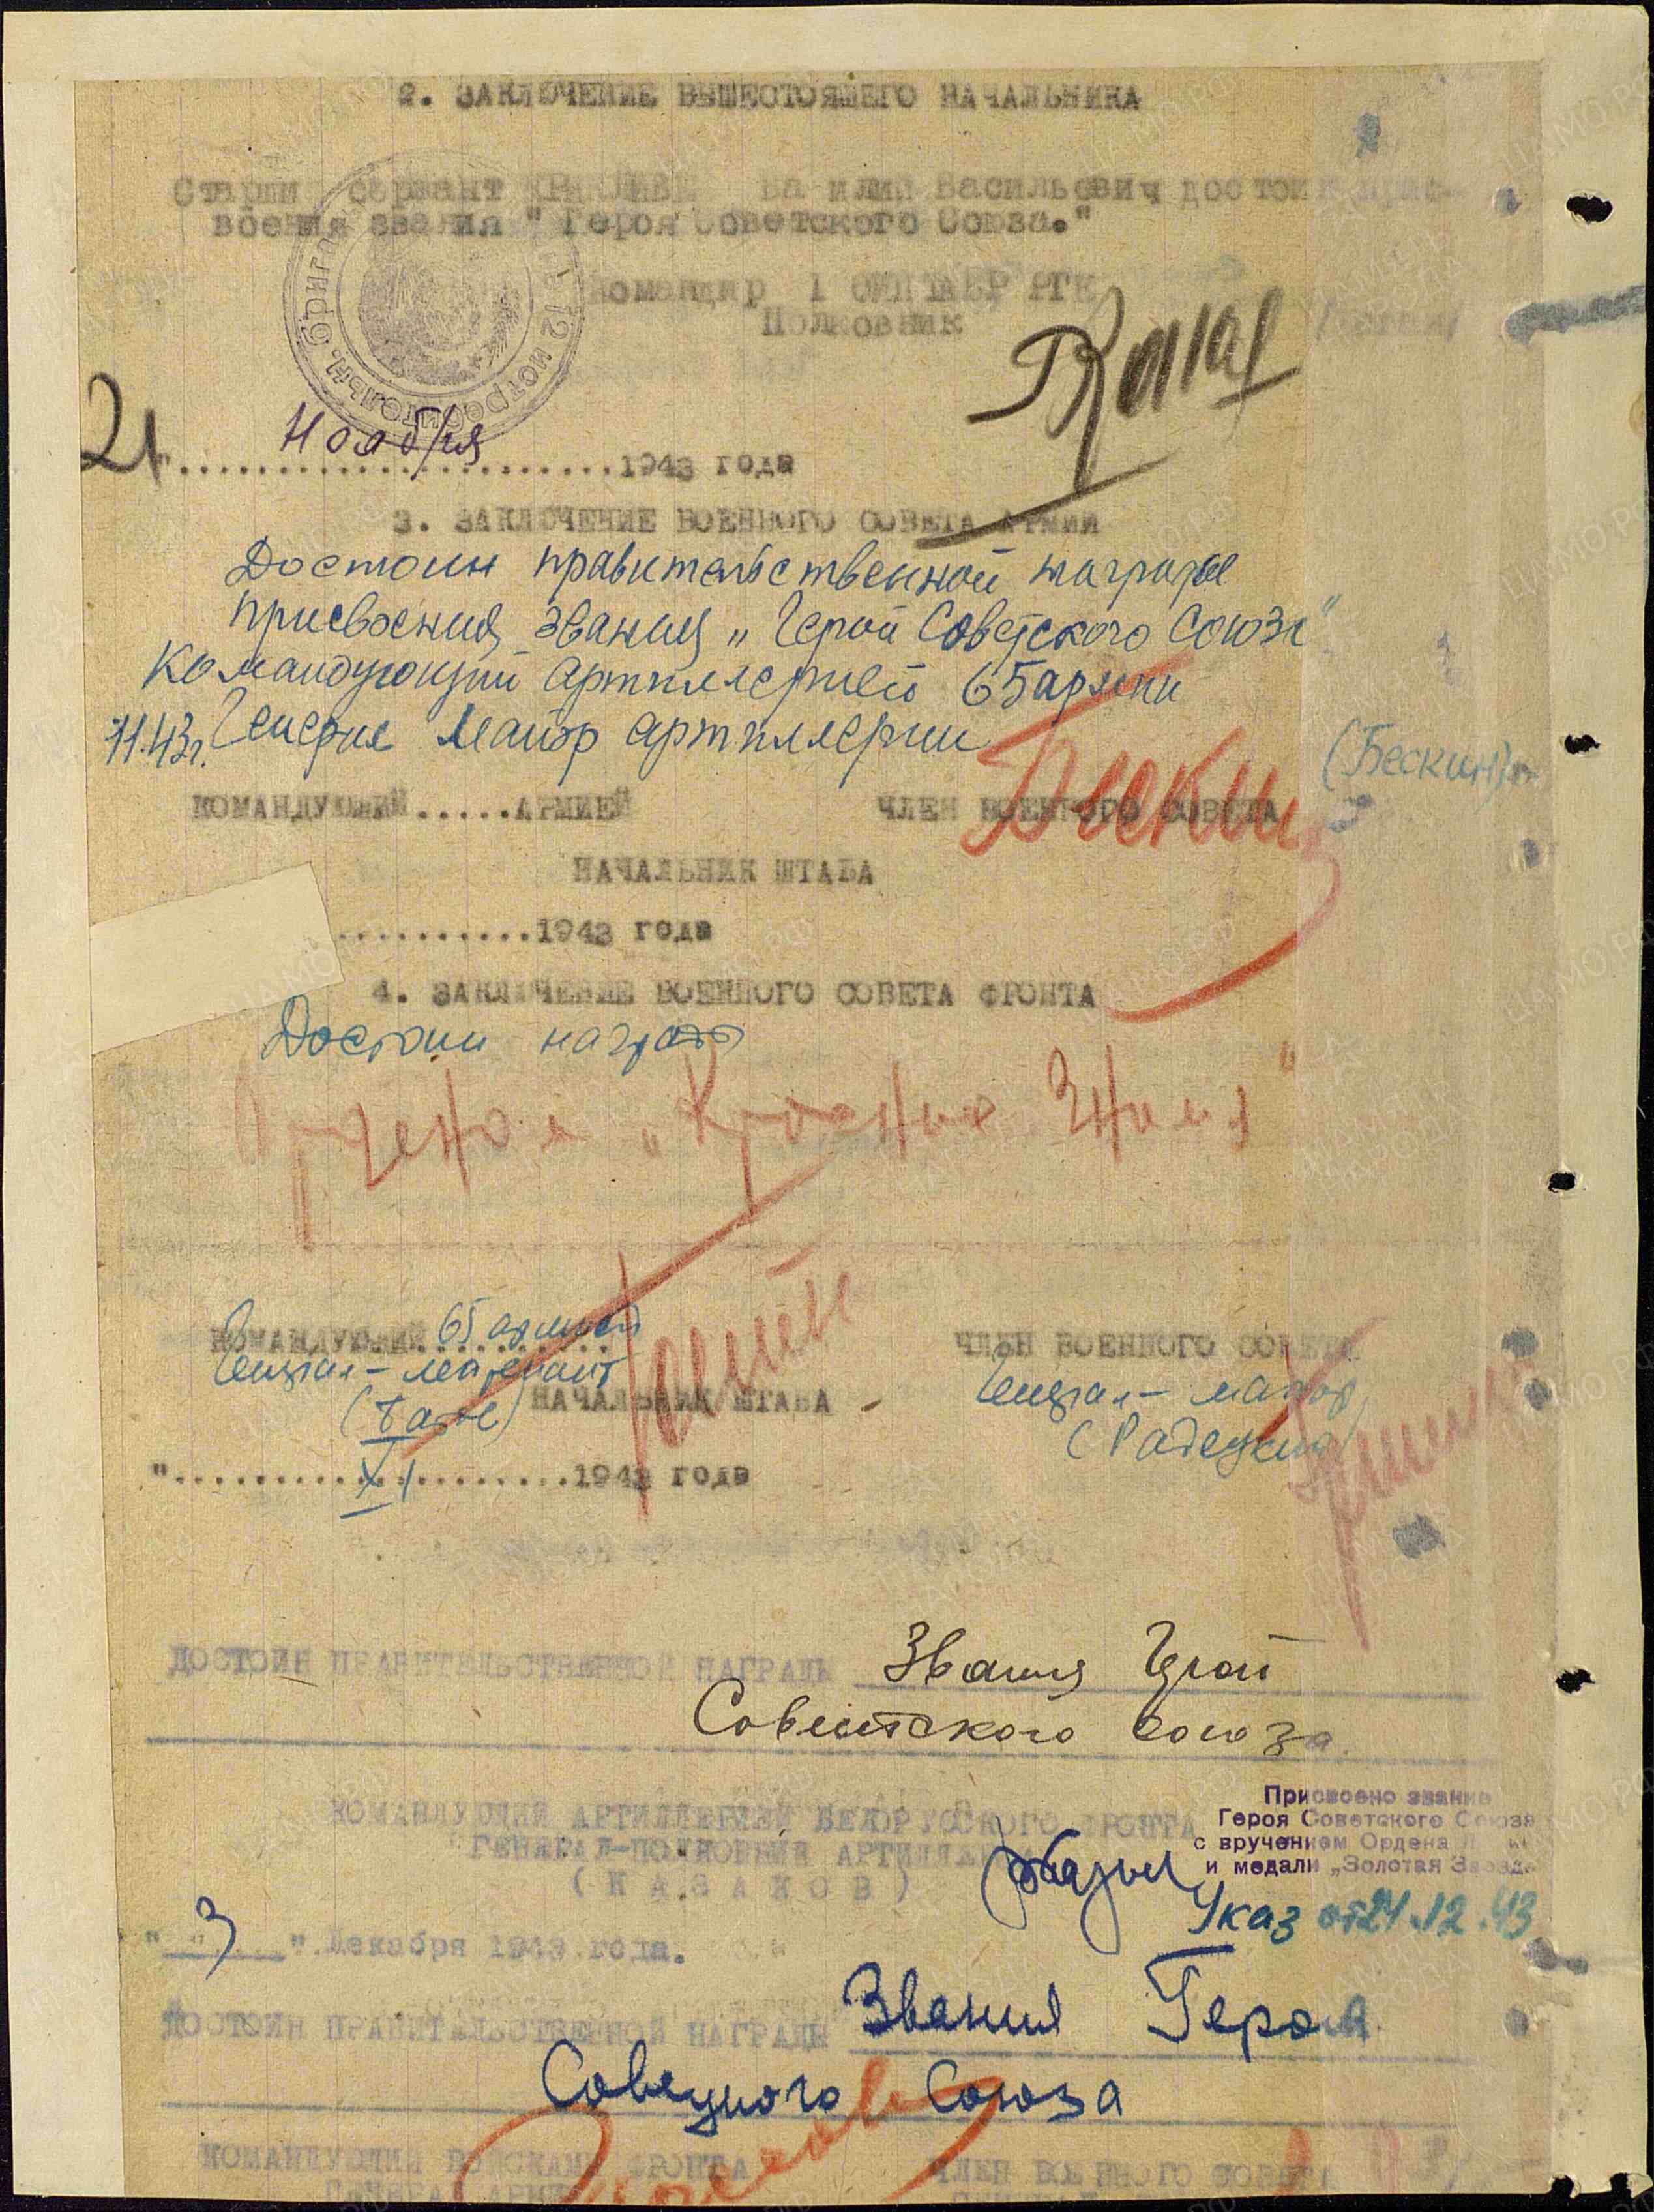 2. ЗАКЛЮЧЕНИЕ ВЫШЕСТОЯЩЕГО НАЧАЛЬНИКА
Старши сержант Васильевич достоин прис-
воения звания " Героя Советского Союза."
Командир 1 РГК
Полковник
21 Ноября 1943 года
3. ЗАКЛЮЧЕНИЕ ВОЕННОГО СОВЕТА АРМИИ
Достоин правительственной награды
присвоения звания „Герой Советского Союза"
Командующий артиллерией 65 армии
11.43г. Генерал Майор артиллерии
(Бескин)
КОМАНДУЮЩИЙ.....АРМИЕЙ ЧЛЕН ВОЕННОГО СОВЕТА
НАЧАЛЬНИК ШТАБА
...........1943 года
4. ЗАКЛЮЧЕНИЕ ВОЕННОГО СОВЕТА ФРОНТА
Достоин награды
Орденом „Красное Знамя"
КОМАНДУЮЩИЙ 65 армией ЧЛЕН ВОЕННОГО СОВЕТА
Генерал-лейтенант Генерал-майор
(Батов) НАЧАЛЬНИК ШТАБА - (Радецкий)
"......XI......1943 года
ДОСТОИН ПРАВИТЕЛЬСТВЕННОЙ НАГРАДЫ Звания Герой
Советского Союза.
КОМАНДУЮЩИЙ АРТИЛЛЕРИЕЙ БЕЛОРУССКОГО ФРОНТА
ГЕНЕРАЛ-ПОЛКОВНИК АРТИЛЛЕРИИ
( К А З А К О В )
Присвоено звание
Героя Советского Союза
с вручением Ордена
и медали „Золотая Звезда
Указ от 24.12.43
" 3 ". Декабря 1943 года.
ДОСТОИН ПРАВИТЕЛЬСТВЕННОЙ НАГРАДЫ Звания Героя
Советского Союза
КОМАНДУЮЩИЙ ВОЙСКАМИ ФРОНТА ЧЛЕН ВОЕННОГО СОВЕТА
ГЕНЕРАЛ АРМИИ